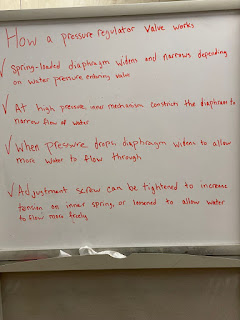 How a pressure regulator valve works
✓ Spring-loaded diaphragm widens and narrows depending
on water pressure entering valve
✓ At high pressure, mechanism constricts the diaphram to
narrow flow of water
✓ When pressure drops, diaphragm widens to allow
more water to flow through
✓ Adjustment screw can be tightened to increase
tension on inner spring, or loosened to allow water
to flow more freely